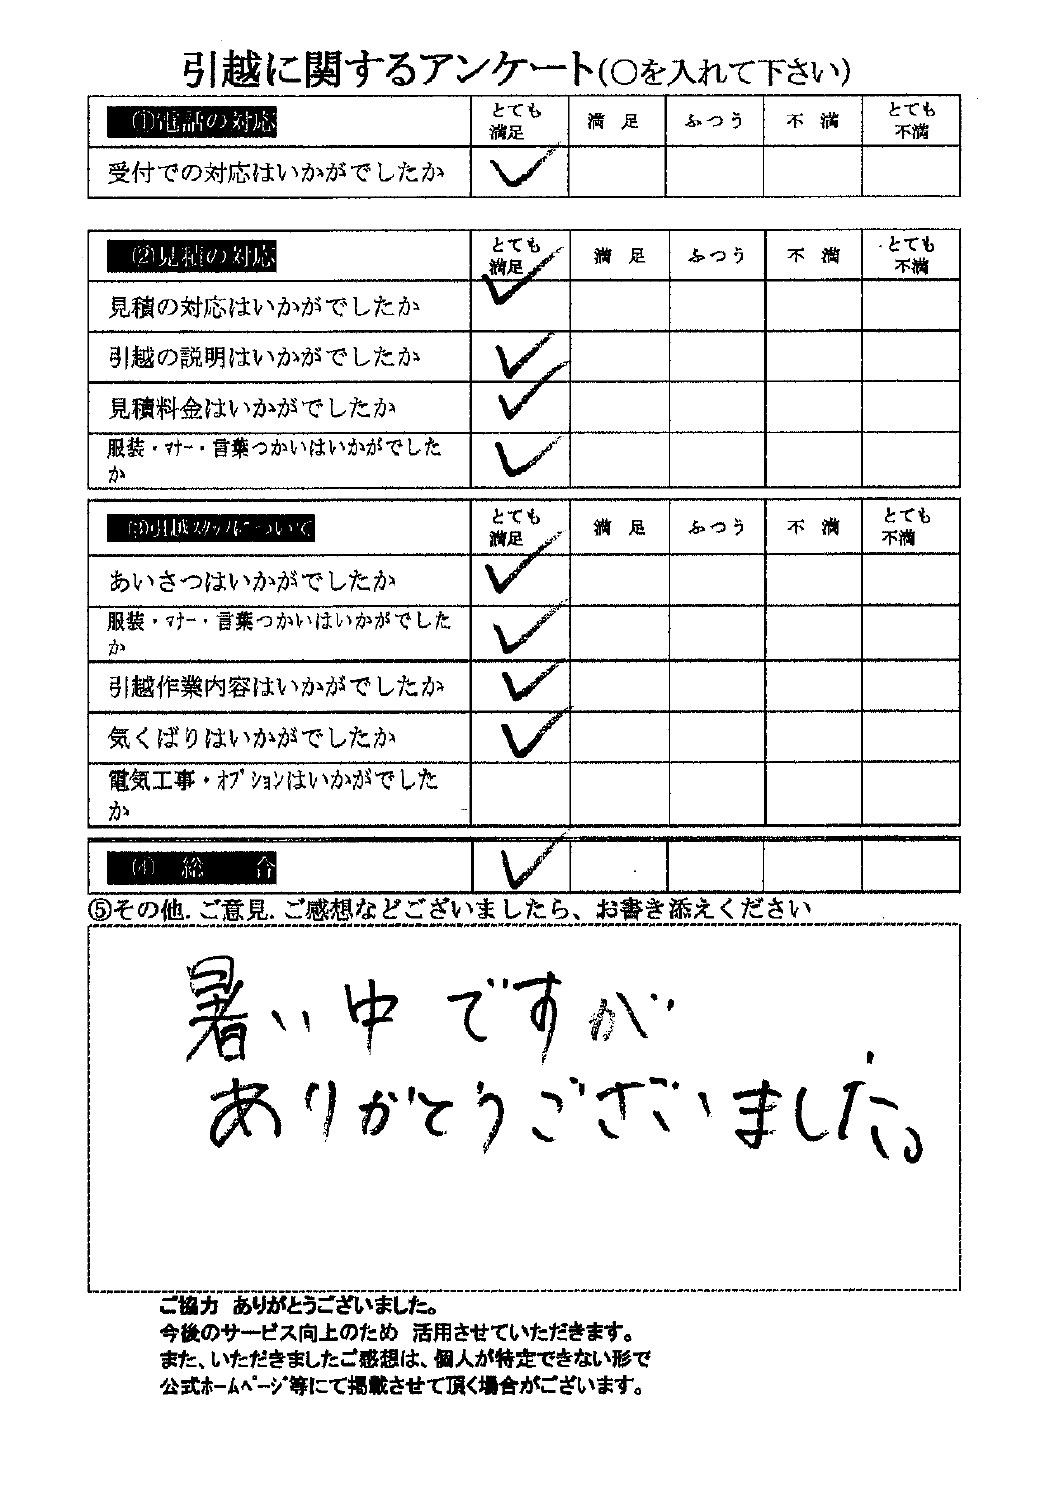 引越に関するアンケート(○を入れて下さい)
①電話の対応 とても満足 満足 ふつう 不満 とても不満
受付での対応はいかがでしたか
②見積の対応 とても満足 満足 ふつう 不満 とても不満
見積の対応はいかがでしたか
引越の説明はいかがでしたか
見積料金はいかがでしたか
服装・マナー・言葉つかいはいかがでした
か
③引越スタッフについて とても満足 満足 ふつう 不満 とても不満
あいさつはいかがでしたか
服装・マナー・言葉つかいはいかがでした
か
引越作業内容はいかがでしたか
気くばりはいかがでしたか
電気工事・オプションはいかがでした
か
(4) 総 合
⑤その他.ご意見.ご感想などございましたら、お書き添えください
暑い中ですが
ありがとうございました。
ご協力 ありがとうございました。
今後のサービス向上のため 活用させていただきます。
また、いただきましたご感想は、個人が特定できない形で
公式ホームページ等にて掲載させて頂く場合がございます。